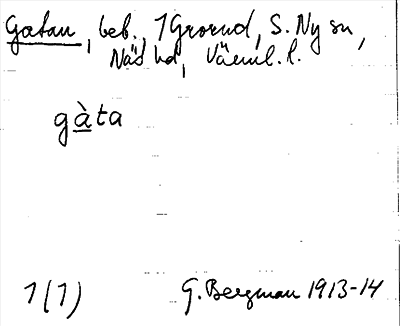 Gatan, beb., 1 Ground, S. Ny sn,
Näs hd, Värml. l.
gàta
1(1) G. Bergman 1913-14